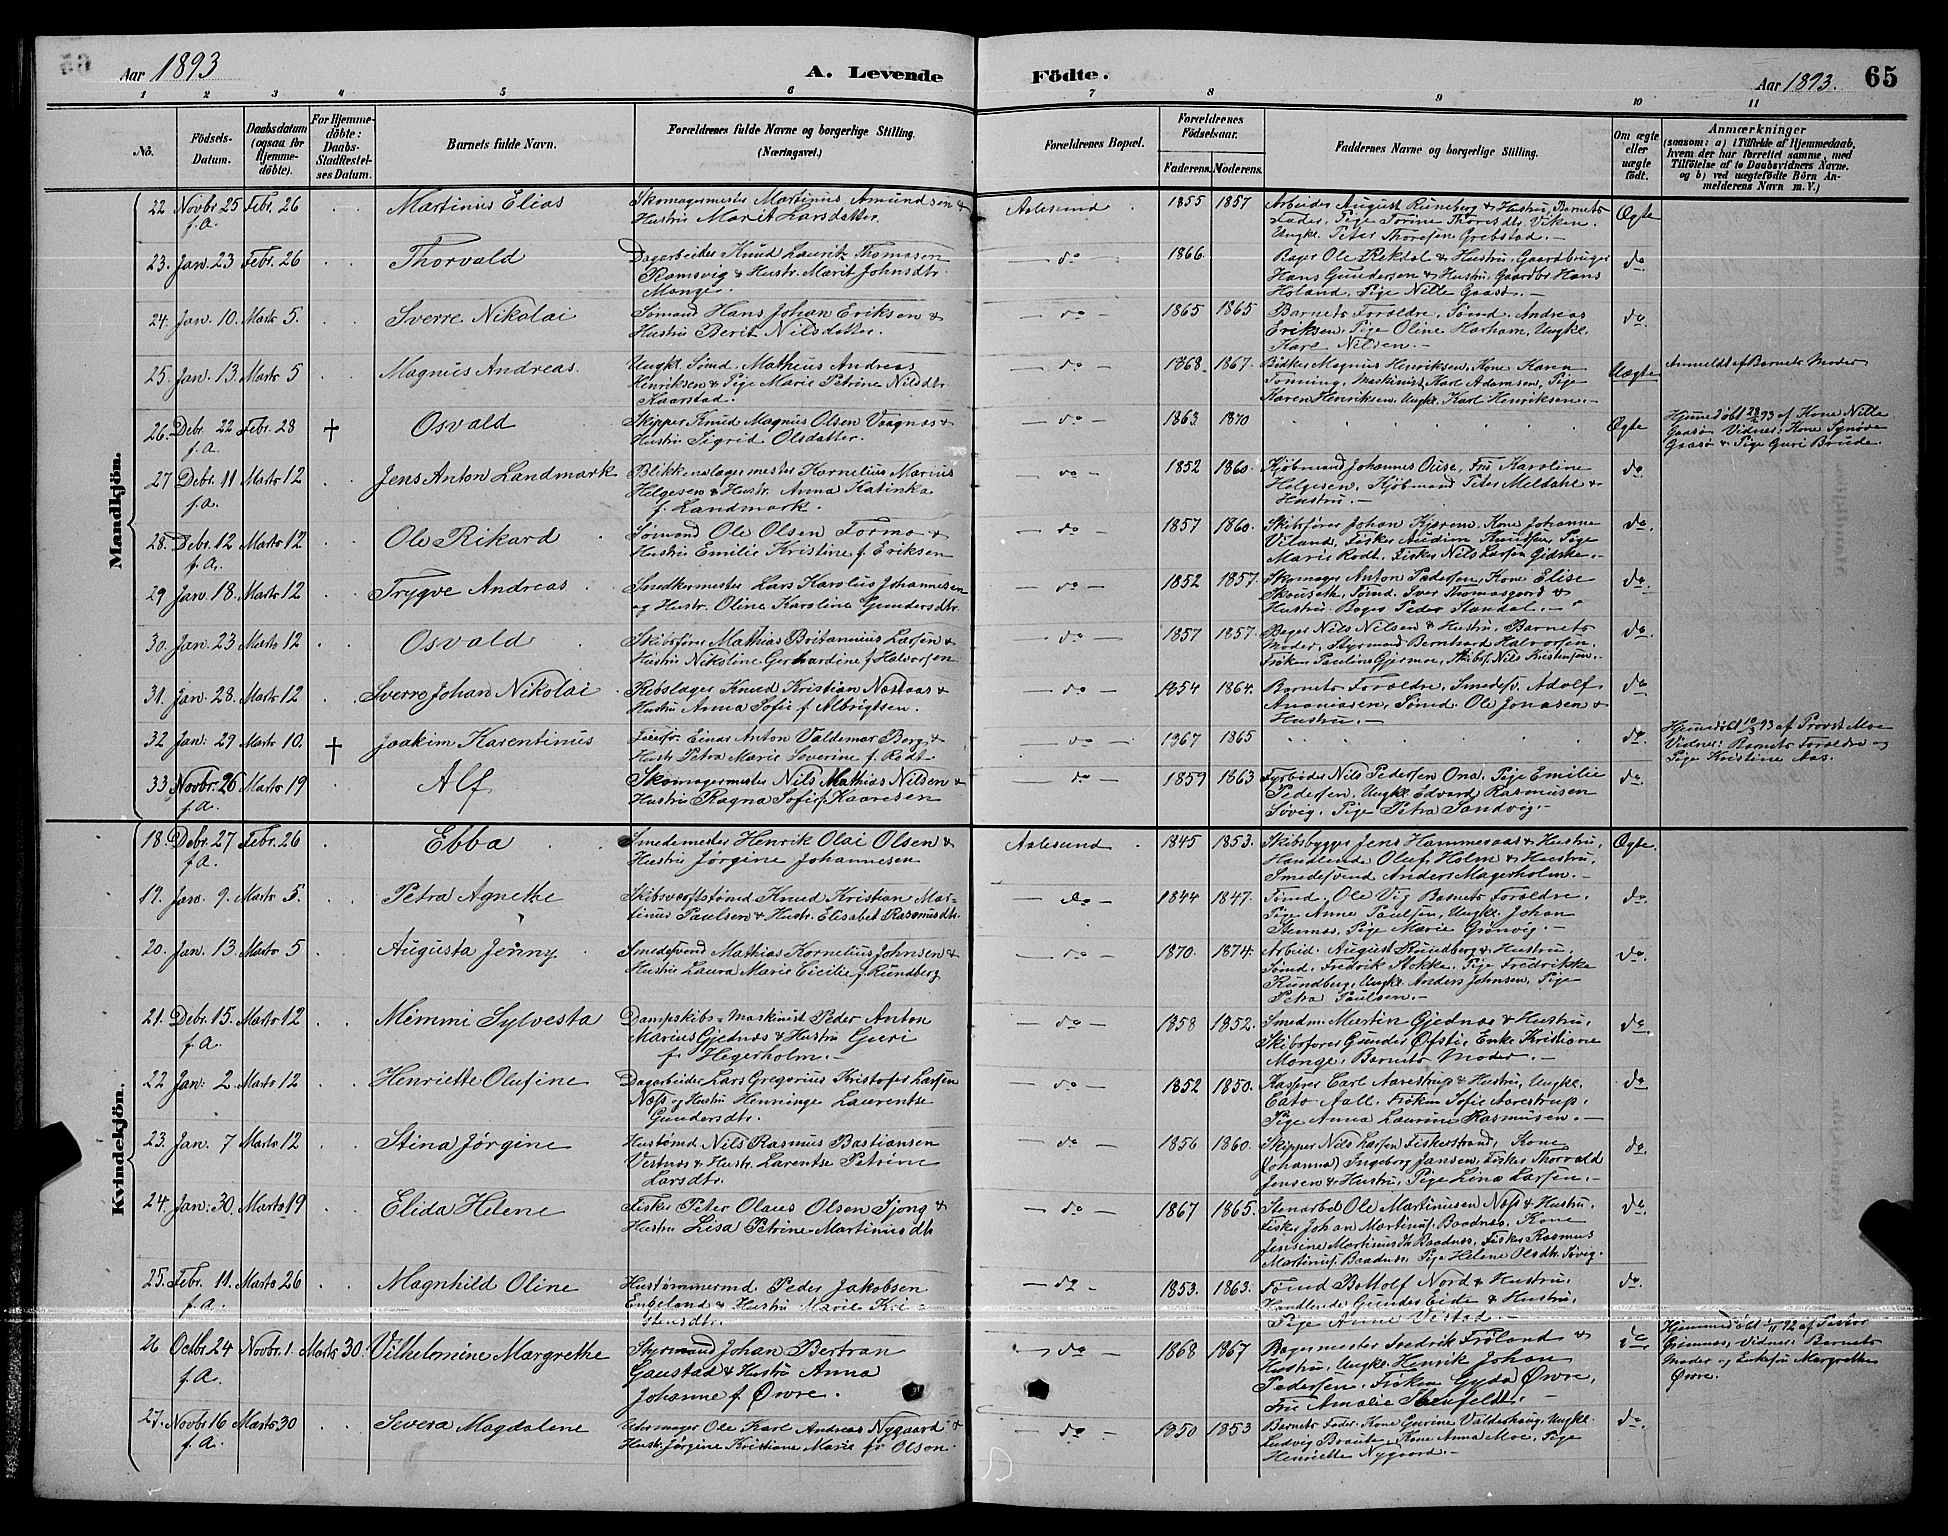 Aar 1893
A. Levende Födte.
Aar 1893.
65
1 2 3 4 5 6 7 8 9 10 11
No.
Födsels-Datum.
Daabsdatum (ogsaa for Hjemme-döbte).
For Hjemme-döbte: Daabs-Stadfæstel-ses Datum.
Barnets fulde Navn.
Forældrenes fulde Navne og borgerlige Stilling. (Næringsvei.)
Forældrenes Bopæl.
Forældrenes Födselsaar.
Faderens. Moderens.
Faddernes Navne og borgerlige Stilling.
Om ægte eller uægte født.
Anmærkninger
(saasom: a) i Tilfælde af Hjemmedaab, hvem der har forrettet samme, med Tilføielse af to Daabsvidners Navne. og b) ved uægtefödte Börn An-melderens Navn m. V.)
Mandkjön.
22 Novbr 25 f.A. Febr. 26 Martinus Elias Skomagermester Martinus Amundsen & Hustru Marit Larsdatter. Aalesund 1855 1857 Arbeider August Runeberg & Hustru, Barnets Fader, Pige Torine Thoresdtr. Viken, Ungkl. Peter Thoresen Grebstad.— Ægte
23. Jan. 23 Febr. 26 Thorvald Dagarbeider Knud Lauritz Thomasen Ramsvig & Hustr. Marit Johnsdtr. Monge. —do— 1866. Bager Ole Rekdal & Hustru, Gaardbruger Hans Gundersen & Hustru, Gaardbr. Hans Holand, Pige Nille Gaasø.— do
24. Jan. 10. Marts 5. Sverre Nikolai Sømand Hans Johan Eriksen & Hustru Berit Nilsdatter. —do— 1865 1865 Barnets Forældre, Sømd. Andreas Eriksen, Pige Oline Harham, Ungkl. Karl Nilsen.— do
25. Jan. 13. Marts 5 Magnus Andreas. Ungkl. Sømd. Mathæus Andreas Henriksen & Pige Marie Petrine Nilsdtr. Kaarstad. —do— 1868 1867. Bødker Magnus Henriksen, Kone Hanna Tonning, Maskinist Karl Adamsen, Pige Karen Henriksen, Ungkl. Karl Henriksen.— Uægte Anmeldt af Barnets Moder
26. Debr. 22 f.A. Febr. 28 † Osvald Skipper Knud Magnus Olsen Vaagnes & Hustru Sigrid Olsdatter. —do— 1863 1870 Ægte Hjemmedøbt 28/2 93 af Kone Nille Gaasø Vidner: Kone Synøve Gaasø & Pige Guri Brude.
27 Debr. 11 f.A. Marts 12 Jens Anton Landmark Blikkenslagermester Kornelius Marius Helgesen & Hustr. Anna Katinka f. Landmark. —do— 1852 1860. Kjøbmand Johannes Ouse, Frk Karoline Helgesen, Kjøbmand Peter Meldahl & Hustru.— do
28. Debr. 12 f.A. Marts 12 Ole Rikard Sømand Ole Olsen Formo & Hustru Emilie Kristine f. Eriksen —do— 1857 1860. Skibsfører Johan Kjærem, Kone Johanne Viland, Fisker Audun Knudsen, Pige Marie Rødt, Fisker Nils Larsen Gidske.— do
29 Jan. 18. Marts 12 Trygve Andreas Snedkermester Lars Karolus Johannesen og Hustr. Oline Karoline Gundersdtr. —do— 1852 1857. Skomager Anton Pedersen, Kone Elise Skouseth, Tømd. Iver Thomasgaard & Hustru, Bager Peder Standal.— do
30. Jan. 23 Marts 12 Osvald Skibsfører Mathias Britanius Larsen & Hustru Nikoline Gerhardine f. Halvorsen —do— 1857 1857. Bager Nils Nilsen & Hustru, Barnets Moder, Styrmand Bernhard Halvorsen, Frøken Pauline Gjermoe, Skibsf. Nils Kristensen. do
31. Jan. 28. Marts 12 Sverre Johan Nikolai Rebslager Knud Kristian Næstaas & Hustru Anna Sofie f. Albrigtsen. —do— 1854 1864. Barnets Forældre, Smedesv. Adolf Ananiasen, Sømd. Ole Jonasen & Hustru.— do
32 Jan: 29 Marts 10. † Joakim Karentinus Einar Anton Valdemar Berg & Hustr Petra Marie Severine f. Rødt. —do— 1867 1865 do Hjemmedøbt 10/3 93 af Provst Moe Vidner: Barnets Forældre og Pige Kristine Aas.
33 Novbr. 26 f.A. Marts 19 Alf Skomagermester Nils Mathias Nilsen & Hustru Ragna Sofie f. Kaaresen —do— 1859 1863 Fyrbøder Nils Pedersen Ona, Pige Emilie Pedersen, Ungkl. Edvard Rasmusen Søvig, Pige Petra Sandvig.
Kvindekjön.
18. Debr. 27 f.A. Febr. 26. Ebba Smedemester Henrik Olai Olsen & Hustru Jørgine Johannesen Aalesund 1845 1853. Skibsbygger Jens Hammesaas & Hustru, Handlende Oluf Holm & Hustru, Smedesvend Anders Magerholm.— Ægte.
19. Jan. 9. Marts 5. Petra Agnethe Skibsværftstømd Knud Kristian Martinus Paulsen & Hustr. Elisabet Rasmusdtr. —do— 1844 1847. Tømd. Ole Vig Barnets Forældre, Pige Anne Paulsen, Ungkl. Johan Stennes, Pige Marie Grønvig.— do
20. Jan. 13 Marts 5 Augusta Jenny Smedesvend Mathias Kornelius Johnsen & Hustru Laura Marie Cicilie f. Rundberg —do— 1870. 1874. Arbeid. August Rundberg & Hustru, Sømd. Fredrik Stokke, Pige Fredrikke Rundberg, Ungkl. Anders Johnsen, Pige Petra Paulsen.— do
21. Debr. 15. f.A. Marts 12 Mimmi Sylvesta Dampskibs-Maskinist Peder Anton Marius Gjednæs & Hustru Guri f. Hegerholm.— —do— 1858 1852. Smedm. Martin Gjednæs & Hustru, Skibsfører Gunder Øfsti, Enke Kristiane Monge, Barnets Moder.— do
22 Jan: 2. Marts 12 Henriette Olufine Dagarbeider Lars Gregorius Kristofer Larsen Næss og Hustru Henninge Laurentse Gundersdtr. —do— 1852 1850. Kasserer Carl Aarestrup & Hustru, Ungkl. Cato Aall, Frøken Sofie Aarestrup, Pige Anna Laurine Rasmusen.— do
23. Jan. 7 Marts 12 Stina Jørgine Hustømd Nils Rasmus Bastiansen Vestnæs & Hustr. Larentse Petrine Larsdtr. —do— 1856 1860. Skipper Nils Larsen Fiskerstrand, Kone (Johanna) Ingeborg Jansen, Fisker Thorvald Jensen & Hustru, Pige Lina Larsen.— do
24. Jan: 30. Marts 19 Elida Helene Fisker Peter Olaus Olsen Sjong & Hustru Lisa Petrine Martinusdtr —do— 1867 1865. Stenarbd Ole Martinusen Næss & Hustru, Fisker Johan Martinus. Baadnes, Kone Jensine Martinusdtr Baadnes, Fisker Rasmus Martinus. Baadnes, Pige Helene Olsdtr. Søvig. do
25. Febr. 11. f.A. Marts 26 Magnhild Oline Hustømmermd. Peder Jakobsen Engeland & Hustru Marie Kristensdtr. —do— 1853. 1863. Tømd Bottolf Nord & Hustru, Handlende Gunder Eide & Hustru, Pige Anne Vestad.— do
26 Octbr. 24 f.A. Novbr. 1. Marts 30. Vilhelmine Margrethe Styrmand Johan Bertran Gaustad & Hustru Anna Johanne f. Øvre. —do— 1868 1867 Bagermester Fredrik Frøland & Hustru, Ungkl. Henrik Johan Pedersen, Frøken Gyda Øvre, Fru Amalie Stenfeldt.— do Hjemmedøbt 1/11 92 af Pastor Grimnes, Vidner: Barnets Moder og Enkefru Margrethe Øvre.
27. Novbr 16 f.A. Marts 30 Severa Magdalene Uhrmager Ole Karl Andreas Nygaard & Hustr. Jørgine Kristiane Marie f. Olsen —do— 1850 1853 Barnets Fader, Kone Gurine Valderhaug, Ungkl. Ludvig Braute, Kone Anna Moe, Pige Henriette Nygaard.— do